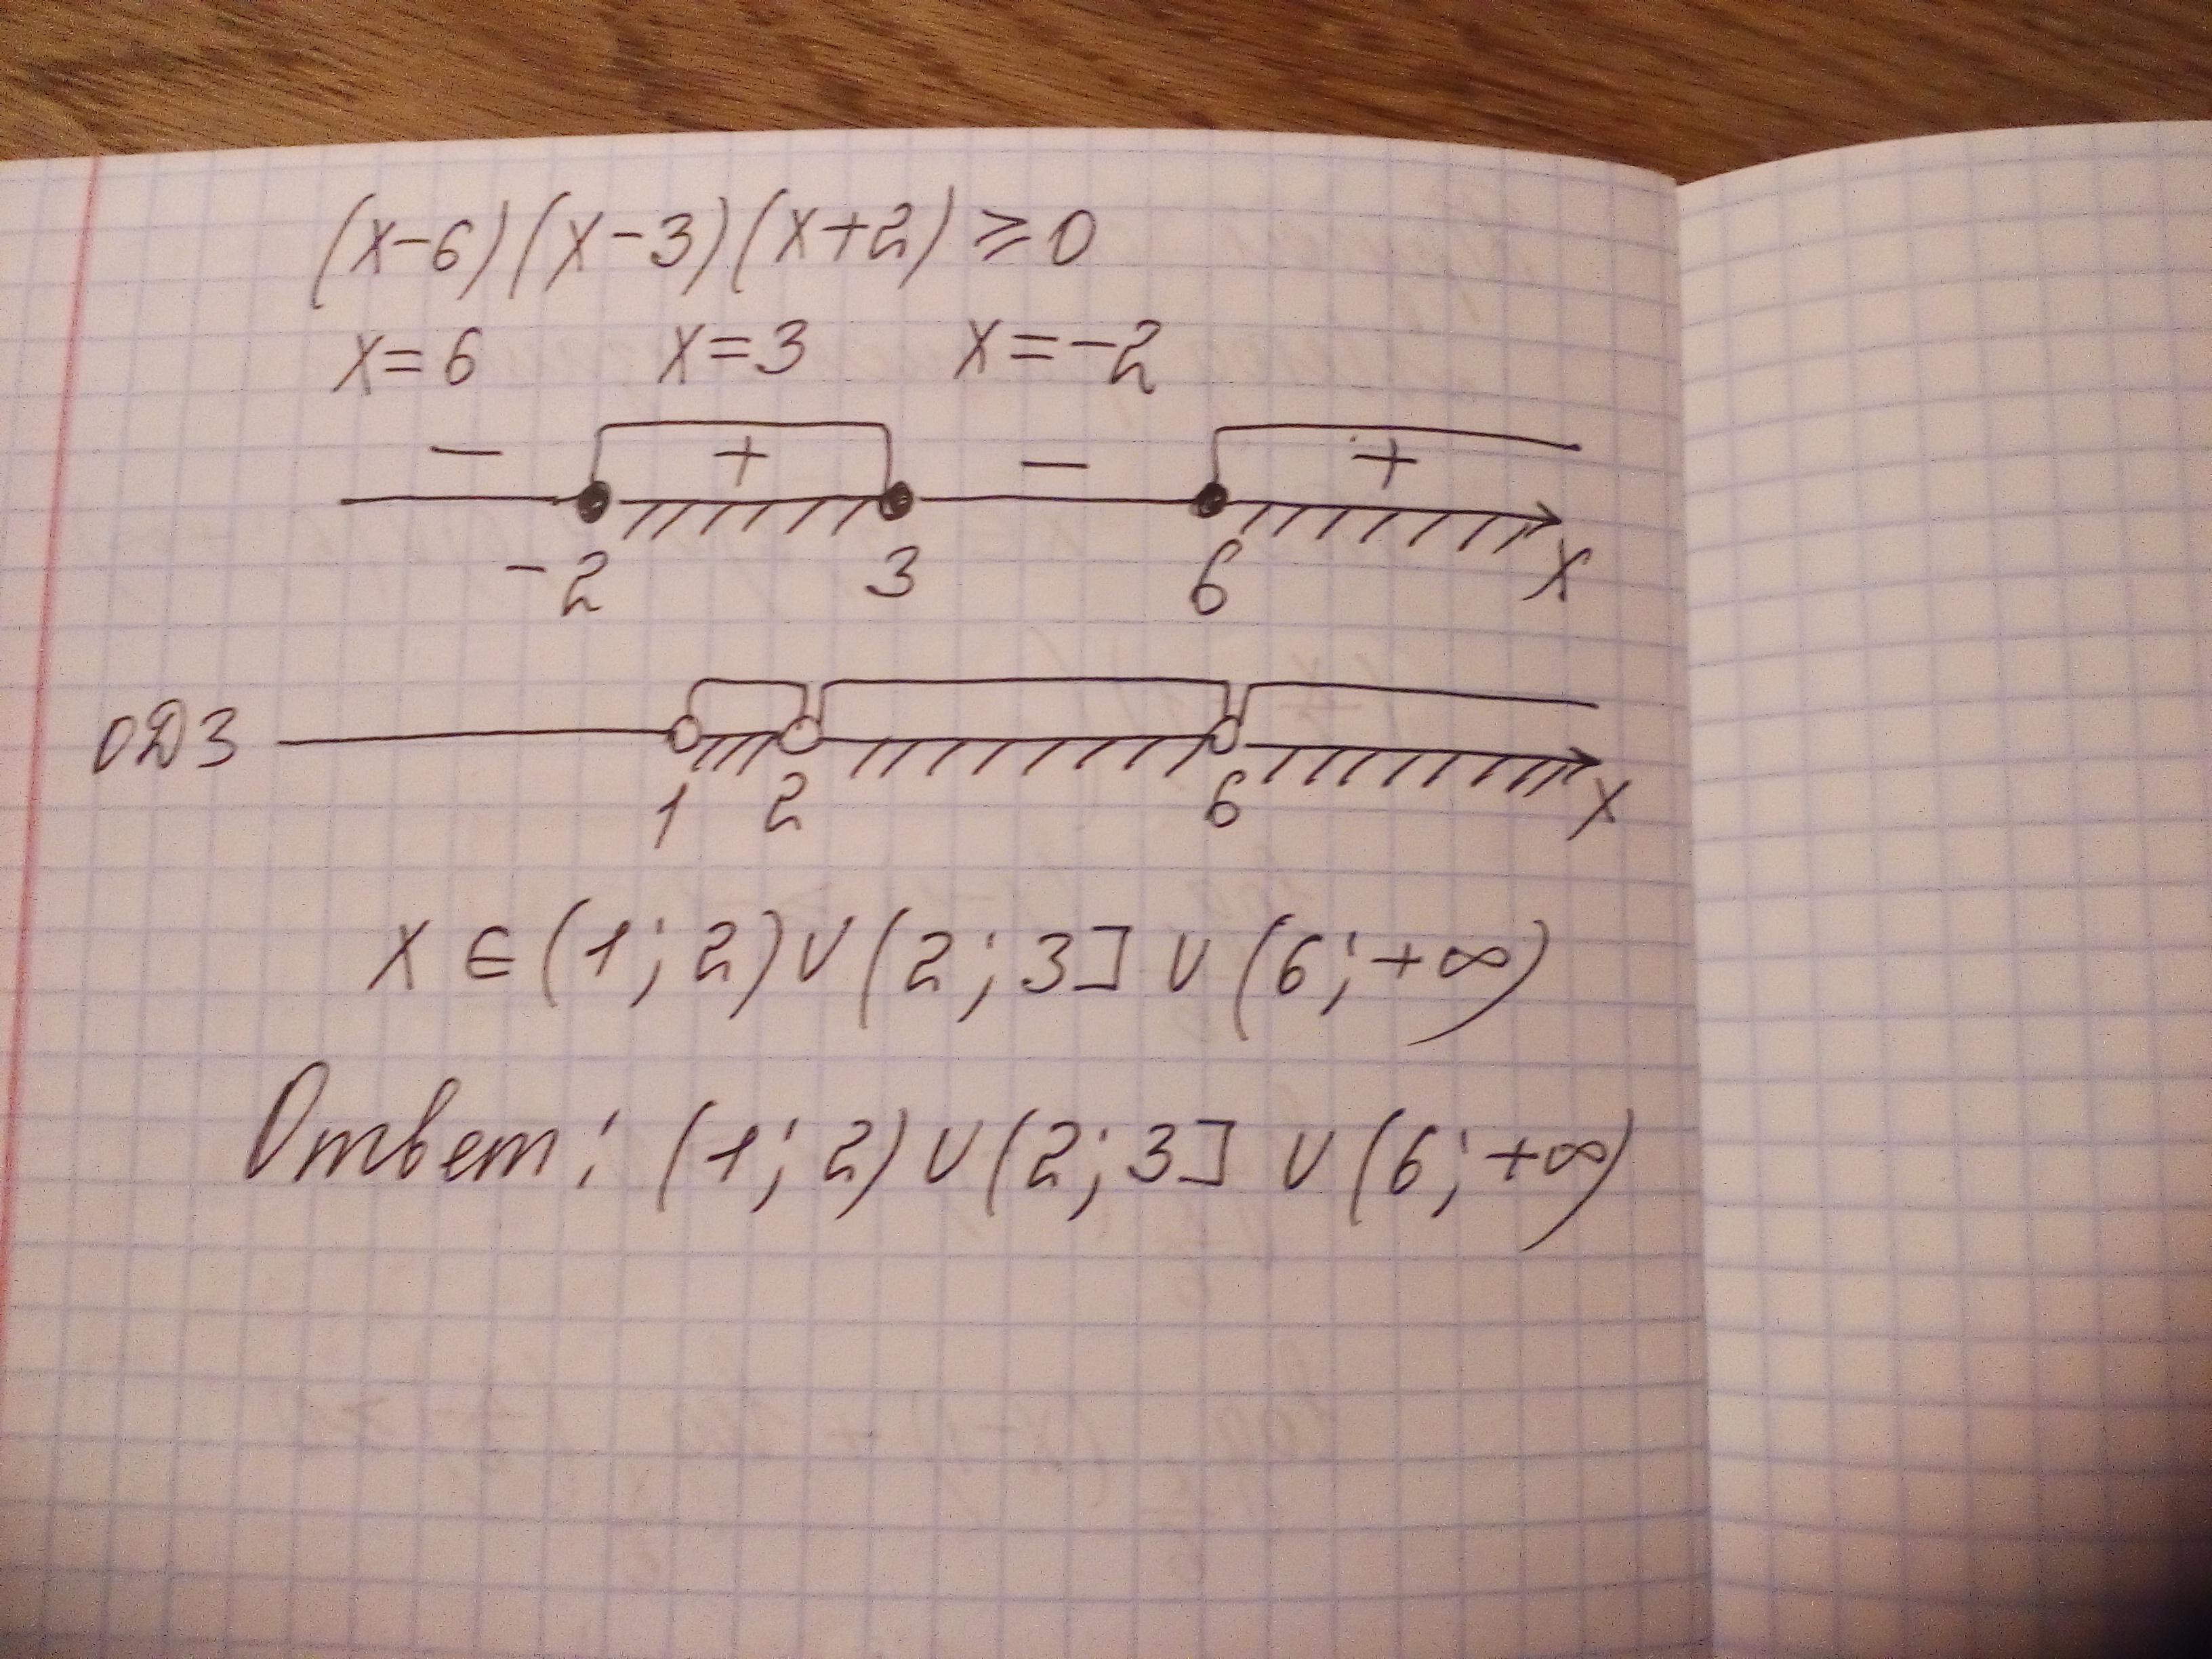 (x-6)(x-3)(x+2)⩾0
x=6 x=3 x=-2
− + − +
-2 3 6 x
ОДЗ
1 2 6 x
x∈(1;2)∪(2;3]∪(6;+∞)
Ответ: (1;2)∪(2;3]∪(6;+∞)